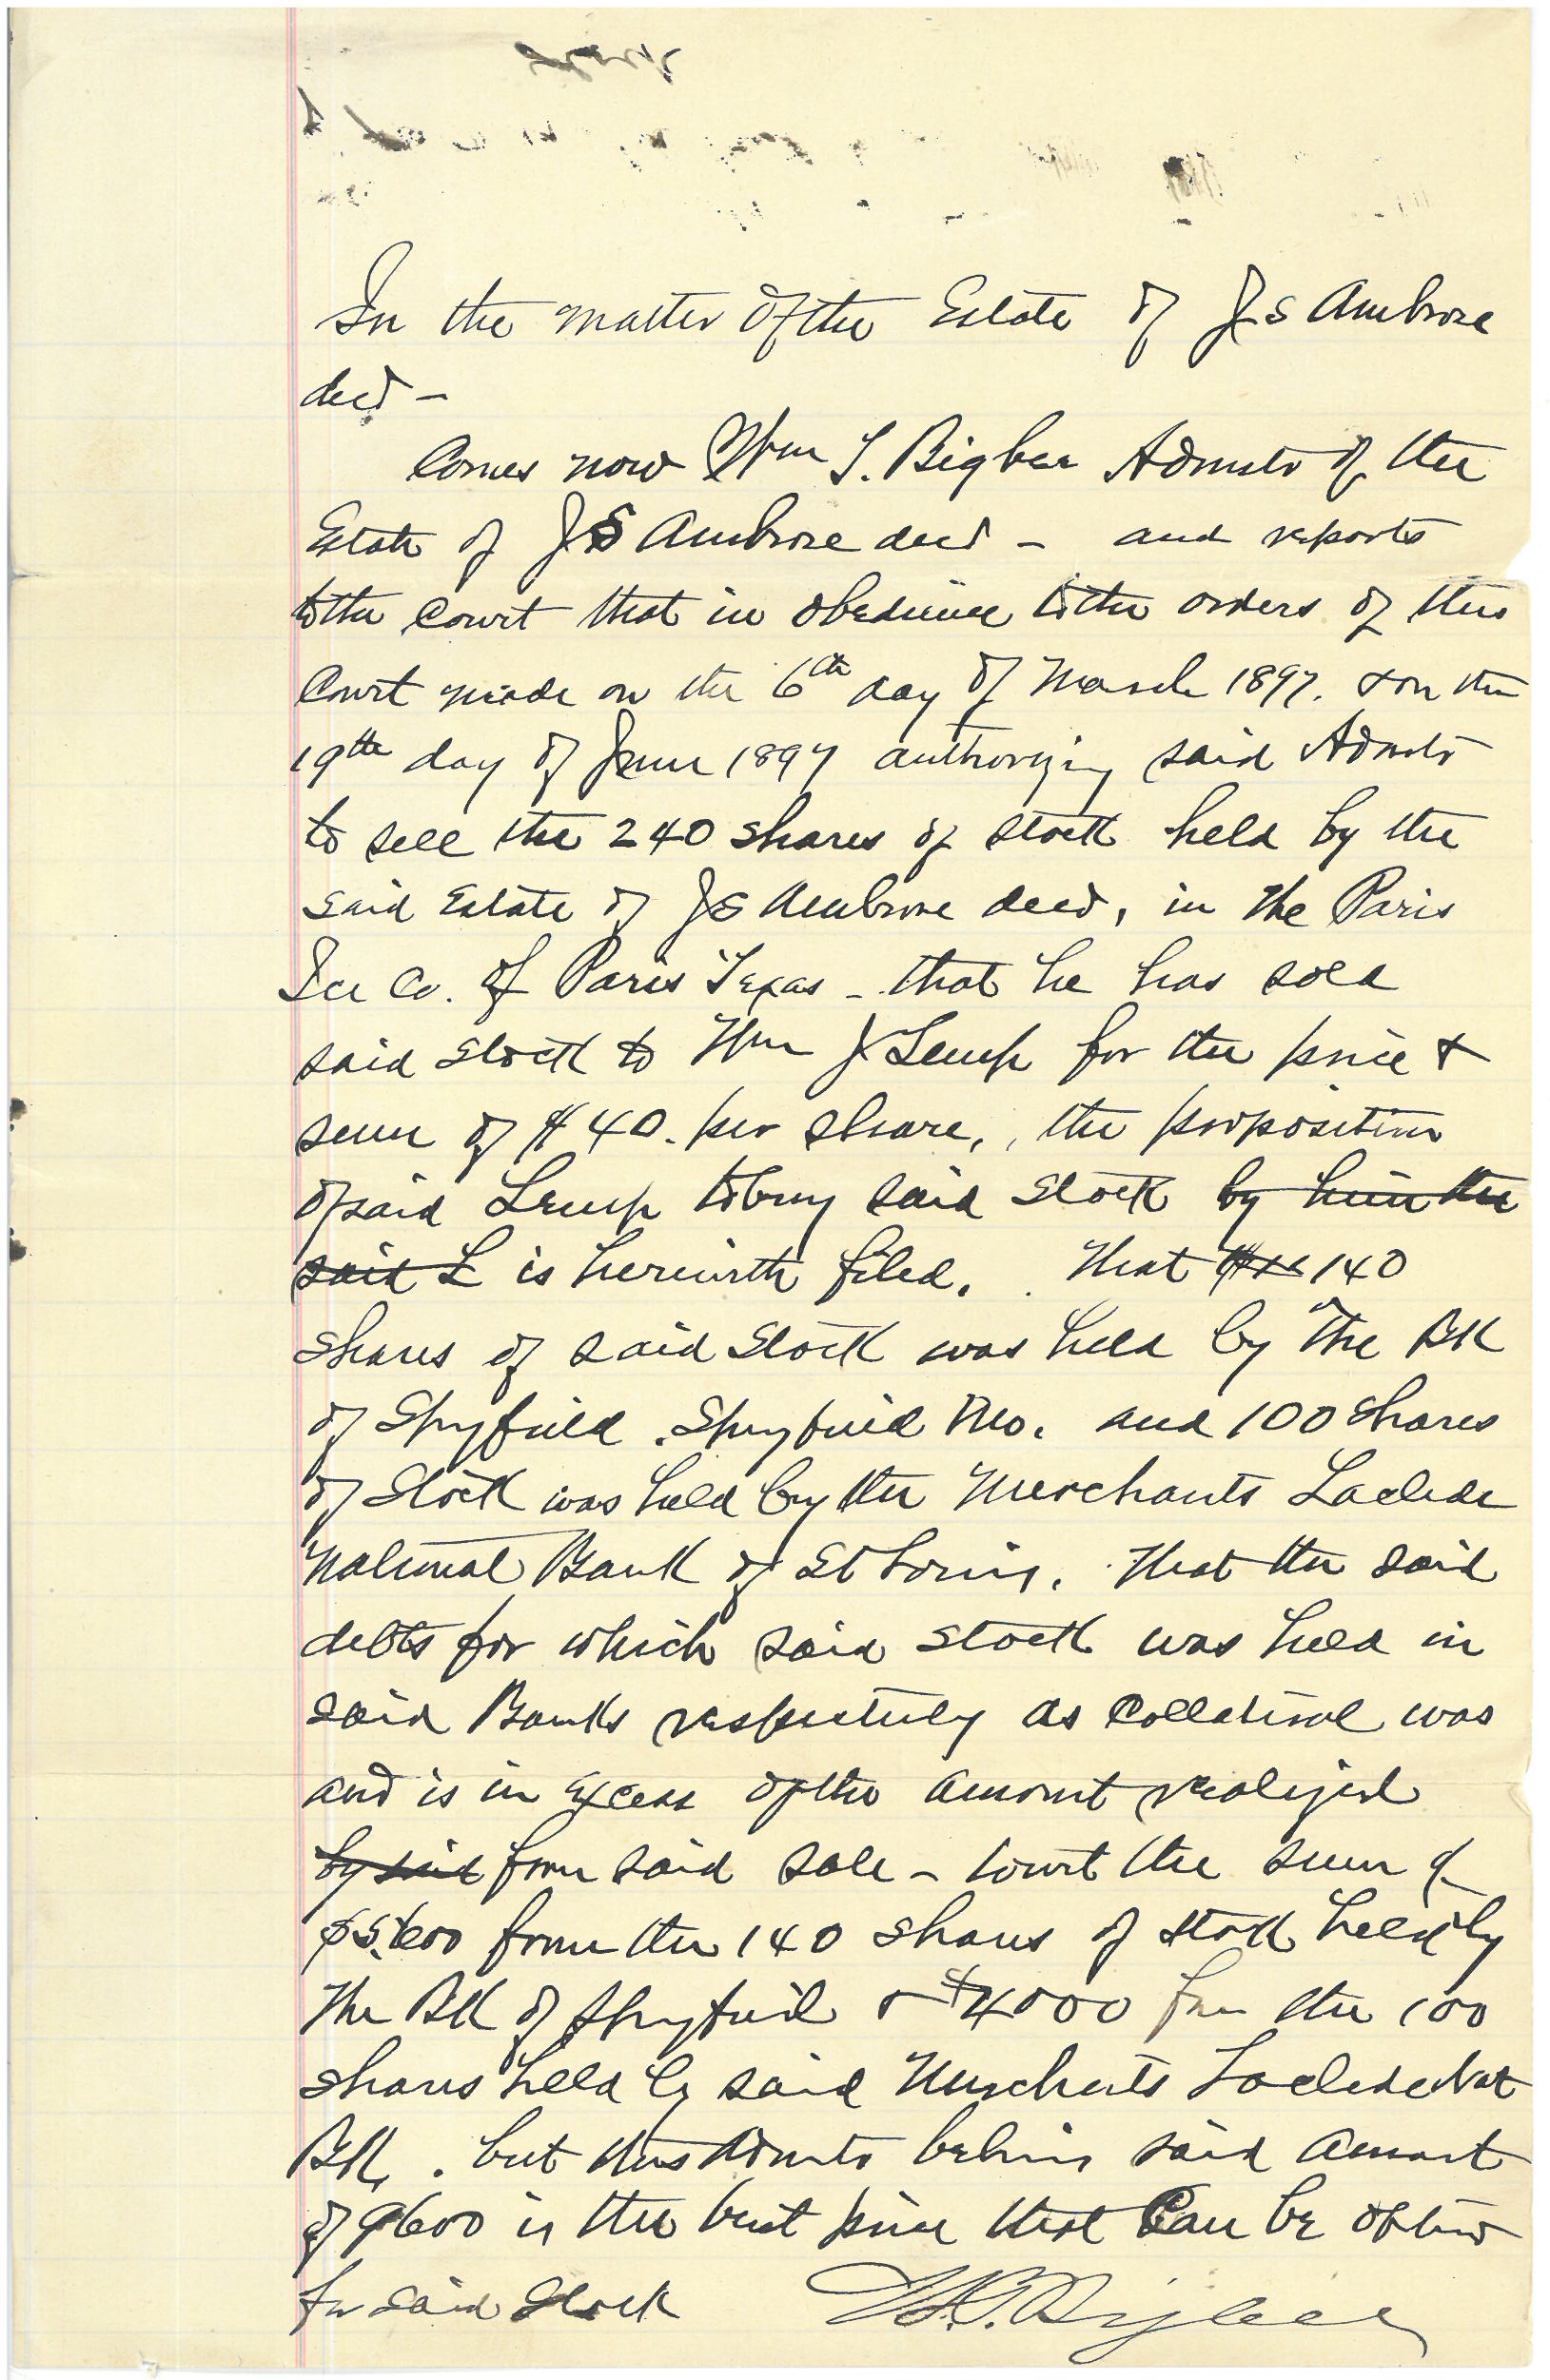 In the matter of the Estate of J S Ambrose
decd –
Comes now Wm S. Bigbee Admstr of the
Estate of J S Ambrose decd – and reports
to the Court that in obedience to the orders of this
Court made on the 6th day of March 1897. & on the
19th day of June 1897 authorizing said Admstr
to sell the 240 shares of stock held by the
said Estate of J S Ambrose decd, in the Paris
Ice Co. of Paris Texas – that he has sold
said stock to Wm J Lemp for the price &
sum of $40. per share, the proposition
of said Lemp to buy said stock by him the
said L is herewith filed. That 140
shares of said stock was held by the Bk
of Spgfield. Spgfield Mo. and 100 shares
of stock was held by the Merchants Laclede
National Bank of St Louis. That the said
debts for which said stock was held in
said Banks respectively as collateral was
and is in excess of the amount realized
by said from said sale – towit the sum of
$5,600 from the 140 shares of stock held by
the Bk of Spgfield & $4000 from the 100
shares held by said Merchants Laclede Nat
Bk. but this Admstr believes said amount
of 9600 is the best price that can be obtained
for said stock